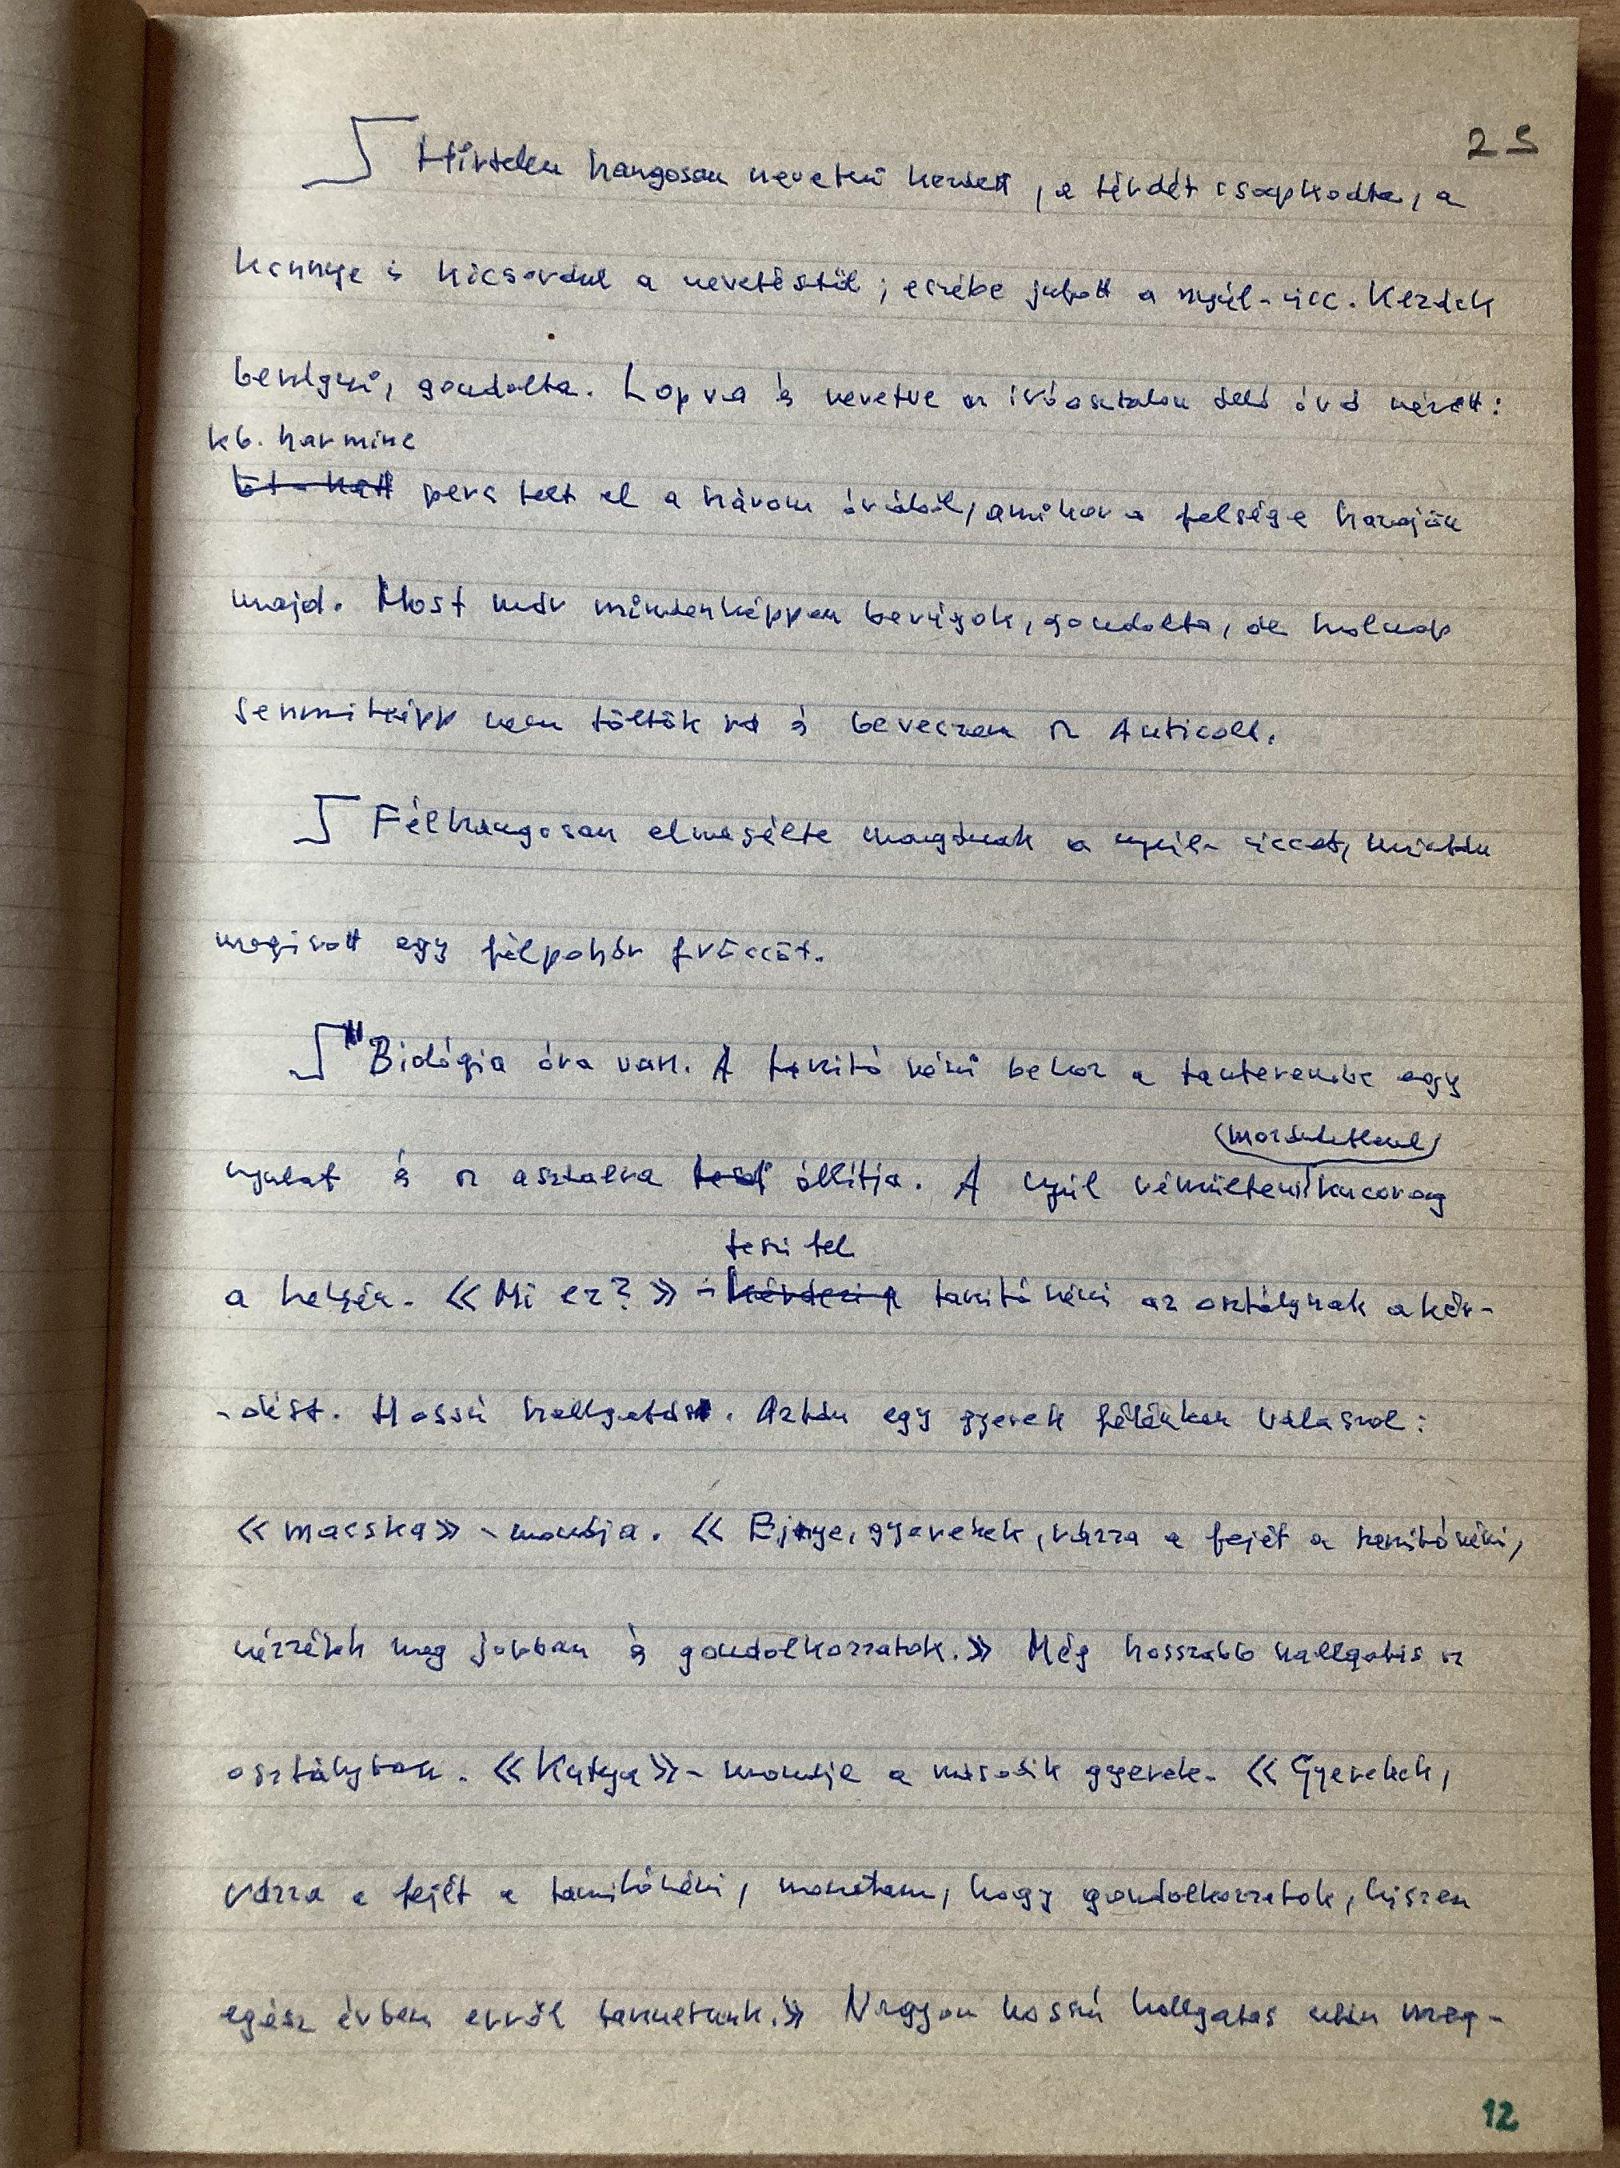 25
Hirtelen hangosan nevetni kezdett, a térdét csapkodta, a
könnye is kicsordul a nevetéstől; eszébe jutott a nyúl-vicc. Kezdek
berúgni, gondolta. Lopva és nevetve az íróasztalon álló óra nézett:
kb. harminc
öt-hat perc telt el a három órából, amikor a felsége hazajön
majd. Most már mindenképpen berúgok, gondolta, de holnap
semmiképp nem töltök rá és beveszem az Anticolt.
Félhangosan elmesélte magának a nyúl-viccet, miután
megivott egy félpohár fröccöt.
"Biológia óra van. A tanító néni behoz a tanterembe egy
(mozdulatlanul)
nyulat és az asztalra teszi állítja. A nyúl rémülten kucorog
teszi fel
a helyén. «Mi ez?» - kérdezi a tanító néni az osztálynak a kér-
-dést. Hosszú hallgatás. Aztán egy gyerek félénken válaszol:
«macska» - mondja. «Ejnye, gyerekek, rázza a fejét a tanítónéni,
nézzétek meg jobban és gondolkozzatok.» Még hosszabb hallgatás az
osztályban. «Kutya» - mondja a második gyerek. «Gyerekek,
rázza a fejét a tanítónéni, mondtam, hogy gondolkozzatok, hiszen
egész évben erről tanultunk.» Nagyon hosszú hallgatás után meg-
12